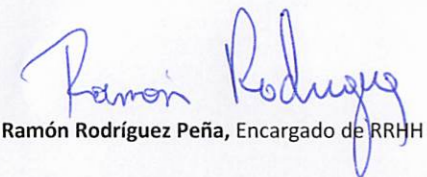 Ramón Rodríguez
Ramón Rodríguez Peña, Encargado de RRHH